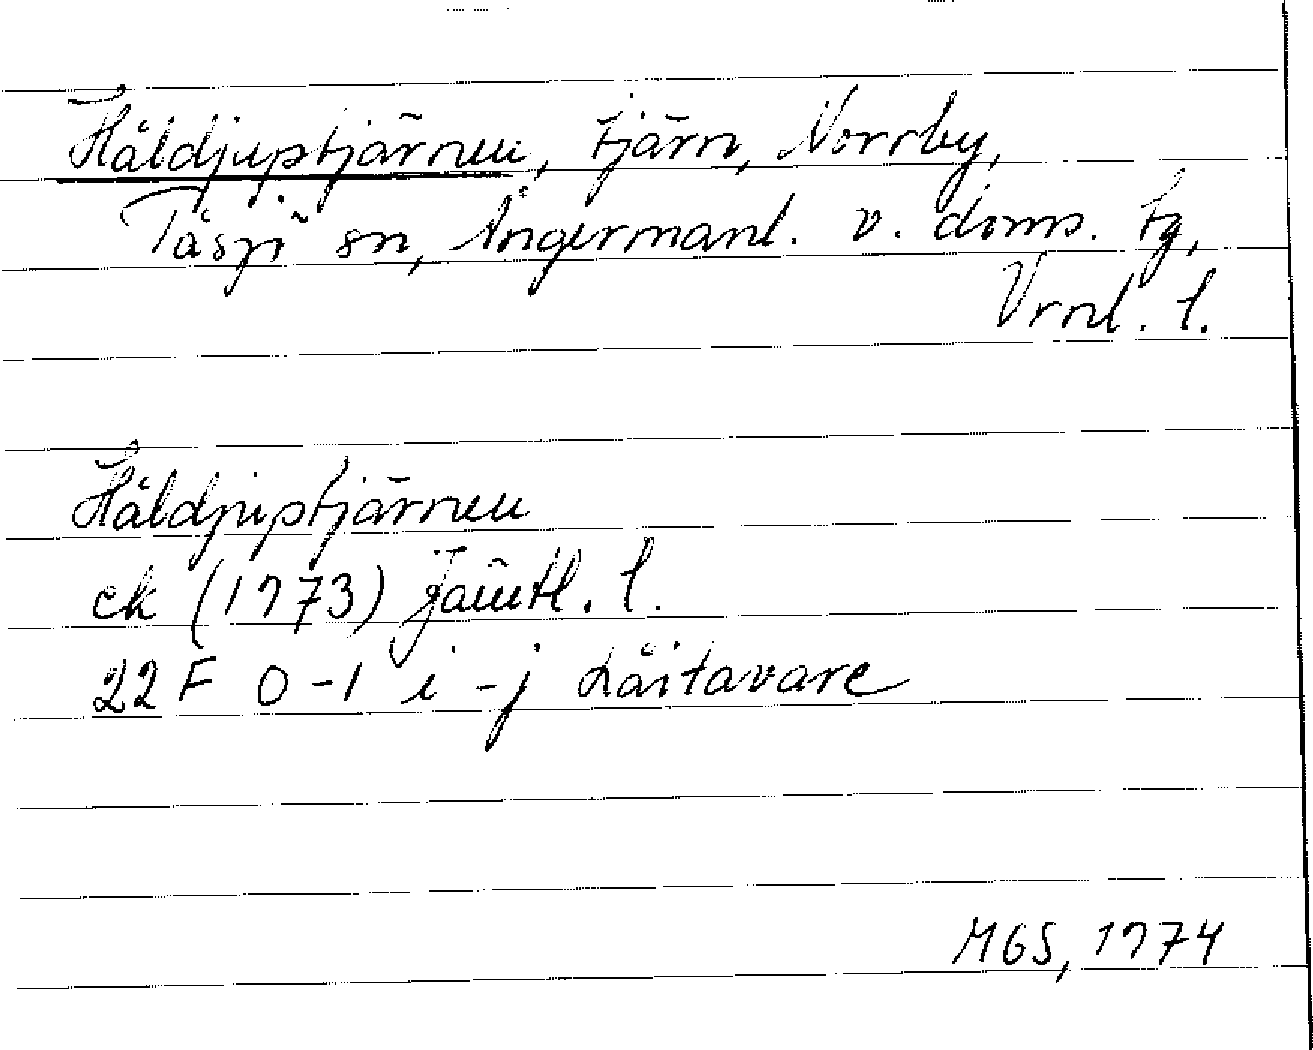 Håldjuptjärnen, tjärn, Norrby,
Tåsjö sn, Ångermanl. v. doms. tg,
Vrnl. l.
Håldjuptjärnen
ek (1973) Jämtl. l.
22 F 0-1 i-j Låitavare
MGS, 1974